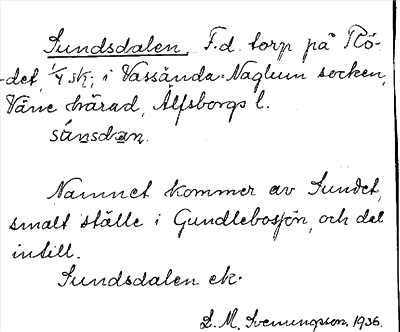 Sundsdalen. F.d. torp på Rö-
det, 1/4 sk; i Vassända-Naglum socken,
Väne härad, Älfsborgs l.
sánsdan.
Namnet kommer av Sundet,
smalt ställe i Gundlebosjön, och del
intill.
Sundsdalen ek.
L. M. Svenungsson, 1936.